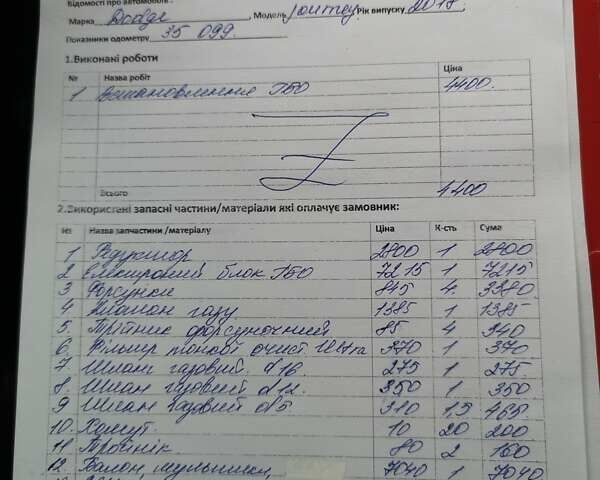 Відомості про автомобіль:
Марка Dodge, Модель Journey Рік випуску 2018
Показники одометру 35 099.
1.Виконані роботи
№ Назва робіт Ціна
1 Встановлення ГБО 4400.
Всього 4400
2.Використені запасні частини/матеріали які оплачує замовник:
№ Назва запчастини /матеріалу Ціна К-сть Сума
1 Редуктор 2800 1 2800
2 Електроний блок ГБО 7215 1 7215
3 Форсунки 845 4. 3380
4 Клапан газу 1385 1 1385
5. Трійник форсуночний 85 4 340
6. Фільтр тонкої очист Ultra 370 1 370
7 Шланг газовий, d16 275 1 275
8. Шланг газовий d12. 350 1 350
9 Шланг газовий d5 310 1,5 465
10. Хомут. 10 20 200
11. Трійнік. 80 2 160
12. Балон, мультикл, 7040 1 7040